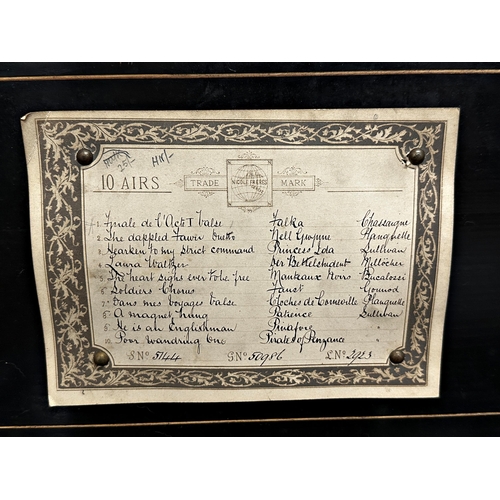 25/- HN/-
10 AIRS TRADE NICOLE FRERES MARK
1 Finale de l'Acte I Valse Falka Chassaigne
2 The dappled Fawn Duetto Nell Gwynne Planquette
3 Hearken to my strict command Princess Ida Sullivan
4 Laura Walzer Der Bettelstudent Millöcher
5 The heart sighs ever to be free Manteaux Noirs Bucalossi
6 Soldiers Chorus Faust Gounod
7 Dans mes voyages Valse Cloches de Corneville Planquette
8 A magnet hung Patience Sullivan
9 He is an Englishman Pinafore "
10 Poor wandring One Pirates of Penzance "
SNº 5144 GNº 50986 LNº 2923